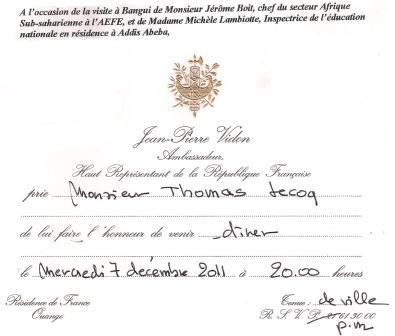 A l'occasion de la visite à Bangui de Monsieur Jérôme Boit, chef du secteur Afrique
Sub-saharienne à l'AEFE, et de Madame Michèle Lambiotte, Inspectrice de l'éducation
nationale en résidence à Addis Abeba,
Jean-Pierre Vidon
Ambassadeur,
Haut Représentant de la République Française
prie Monsieur Thomas Lecoq
de lui faire l'honneur de venir dîner
le Mercredi 7 décembre 2011 à 20.00 heures
Résidence de France Tenue : de ville
Ouango R. S. V. P. 21 01 30 00
p.m